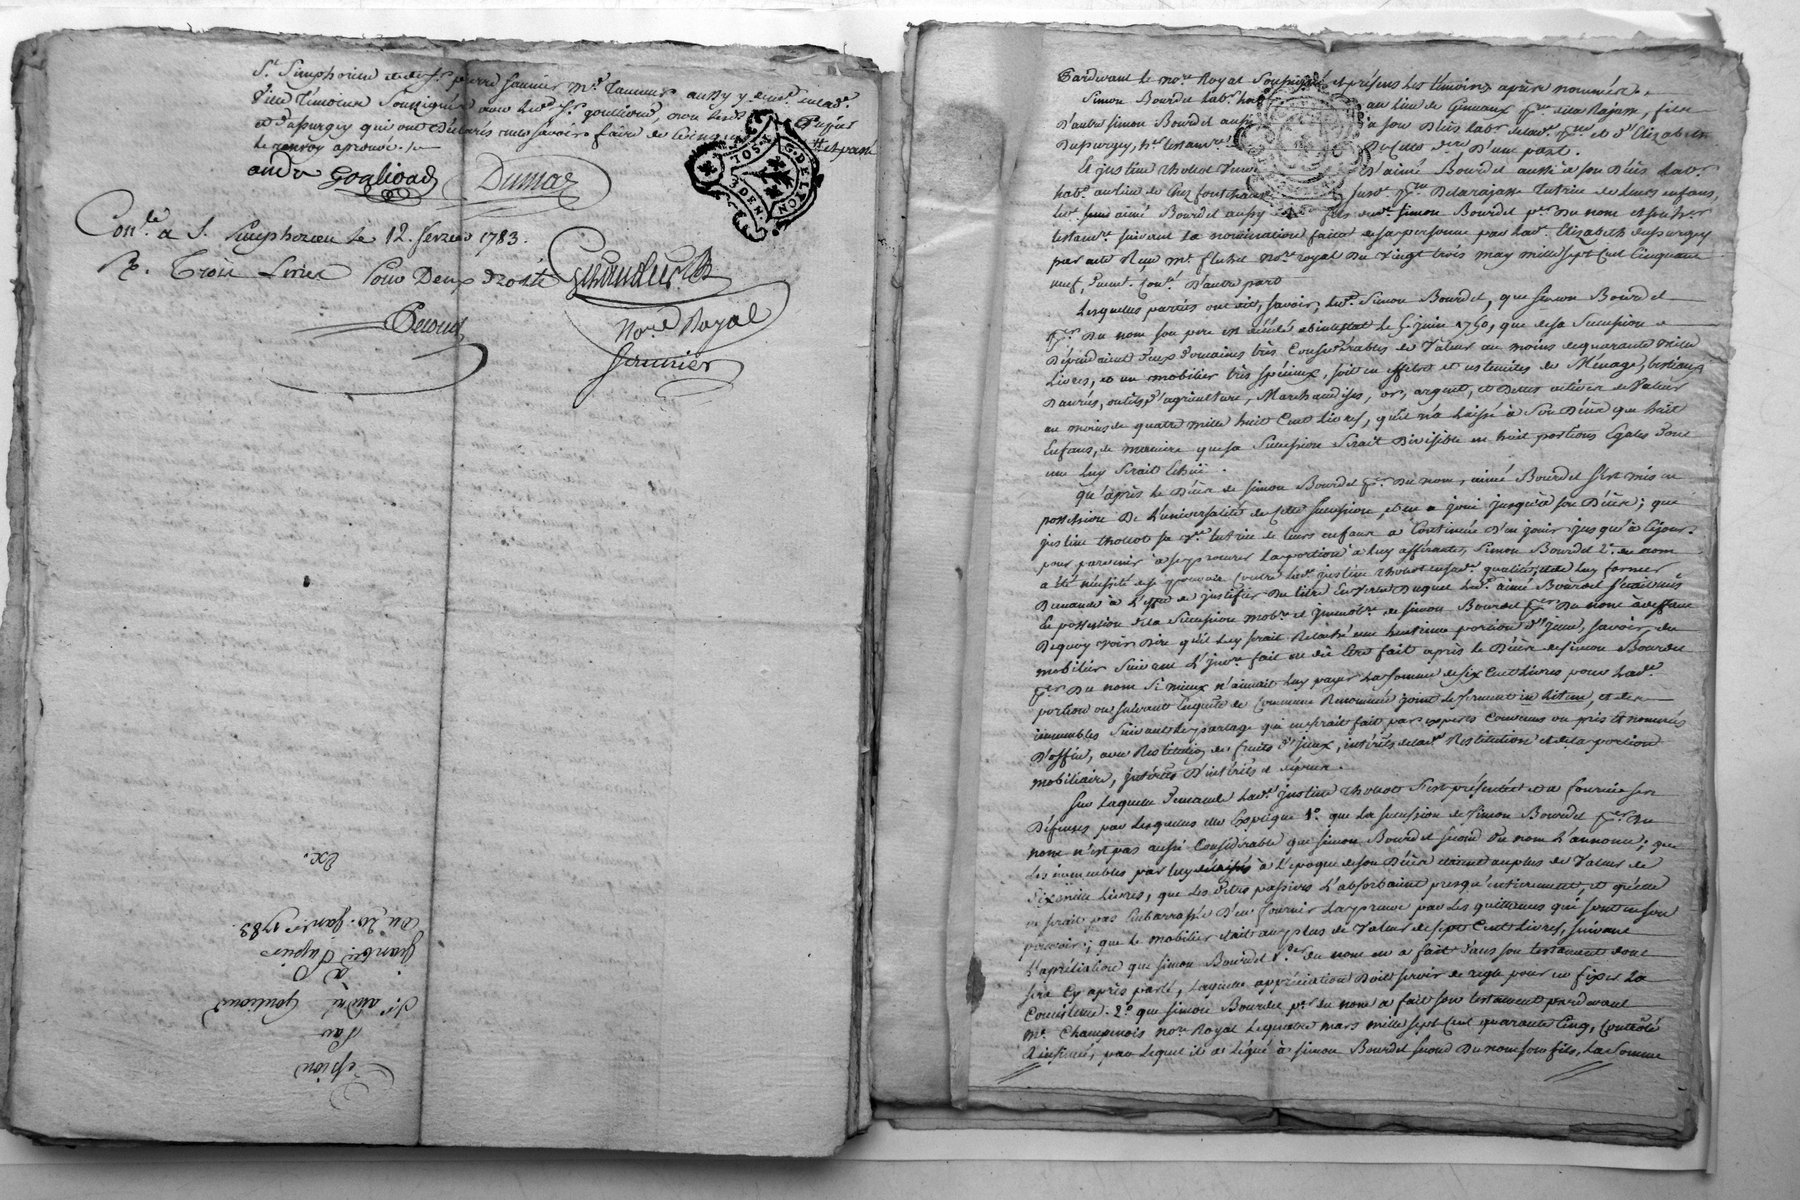 St. Simphorien et de Sr. pierre
témoins soussignés avec led. Sr. goullioud, non led.
et Dupurgey qui ont déclarés ne savoir faire de ce enquis et passé
le renvoy aprouvé
andre Goglioud Dumas
Conlé a S. Simphorien le 12. fevrier 1783.
R. Trois Livres Pour Deux Droits
Nore. Royal
G. DE LYON
3 DEN.
Cession
Par
Sr. andré Goulioud
à
Du 20. Janr. 1783.
ex.
Pardevant le nore. Royal Soussigné et présens les témoins après nommés
Simon Bourdel labr. hab. au lieu de
d'autre Simon Bourdel aussi à son Décès labr.
Dupurgey, d'une part.
Et justine thollot Veuve d'aimé Bourdel aussi à son Décès labr.
habt. au lieu de tutrice de leurs enfans,
led. feu aimé Bourdel aussy fils dud. Simon Bourdel pr. du nom
testamre. suivant la nomination faite de sa personne par lad. Elizabeth Dupurgey
par acte Reçu me. nore. royal du Vingt trois may mille sept Cent Cinquante
neuf, d'autre part
Lesquelles parties ont dit, savoir, led. Simon Bourdel, que simon Bourdel
per. Du nom son pere est décédé abintestat le 5. juin 1750, que de sa Succession
Dépendaient deux Domaines très Considérables de Valeur au moins de quarante mille
Livres, et un mobilier très spécieux, soit en effets et ustenciles de Ménage, bestiaux
Danrées, outils d'agriculture, Marchandises, or, argent, et Dettes actives de Valeur
au moins de quatre mille huit Cent Livres, qu'il n'a laissé à Son Décès que huit
Enfans, de maniere que sa Succession Serait Divisible en huit portions Egales dont
une luy Serait Echüe.
qu'après le Décès de Simon Bourdel per. Du nom, aimé Bourdel s'est mis en
possession De L'universalité de Cette Succession, et en a joui jusqu'à son Décès; que
justine thollot sa Ve. tutrice de leurs enfans a Continué D'en jouir jusqu'à Cejour.
pour parvenir à se procurer la portion à luy afférante, Simon Bourdel 2e. du nom
a été nécessité de se pourvoir Contre lad. justine thollot esd. qualités, et de luy former
Demande à L'effet de justifier Du titre En Vertu Duquel led. aimé Bourdel s'étoit mis
En possession de la Succession mobre. et immobre. de simon Bourdel per. Du nom
Dequoy voir Dire qu'il luy serait Relaché une huitieme portion d'ycelle, savoir, du
mobilier Suivant L'invre. fait ou dû Etre fait après le Décès de simon Bourdel
per. Du nom Si mieux n'aimait luy payer la somme de six Cent Livres pour lad.
portion ou suivant Enquête de Commune Renommée joint le serment in litem, et des
immeubles Suivant le partage qui en serait fait par experts Convenus ou pris et nommés
D'office, avec Restitution des fruits d'yceux, intérêts de lad. Restitution et de la portion
mobiliaire, intérêts D'intérêts et dépens.
Sur laquelle Demande lad. justine thollot s'est présentée et a fourni ses
Défenses par lesquelles elle Explique 1o. que la succession de Simon Bourdel per. Du
nom n'est pas aussi Considérable que simon Bourdel second du nom L'annonce; que
les immeubles par luy délaissés à L'époque de son Décès etaient au plus de Valeur de
six mille Livres, que les Dettes passives L'absorbaient presqu'entierement, et qu'elle
ne serait pas Embarrassée D'en fournir la preuve par les quittances qui sont en son
pouvoir; que le mobilier etait au plus de Valeur de sept Cent Livres, suivant
L'apréciation que simon Bourdel 1er. du nom en a fait dans son testament dont
sera Cy après parlé, laquelle appréciation Doit servir de regle pour en fixer la
Consistence. 2o. que simon Bourdel pr. du nom a fait son testament pardevant
me. Champinois nore. Royal le quatre mars mille sept Cent quarante Cinq, Controlé
et insinué, par lequel il a légué à simon Bourdel second Du nom son fils, la Somme